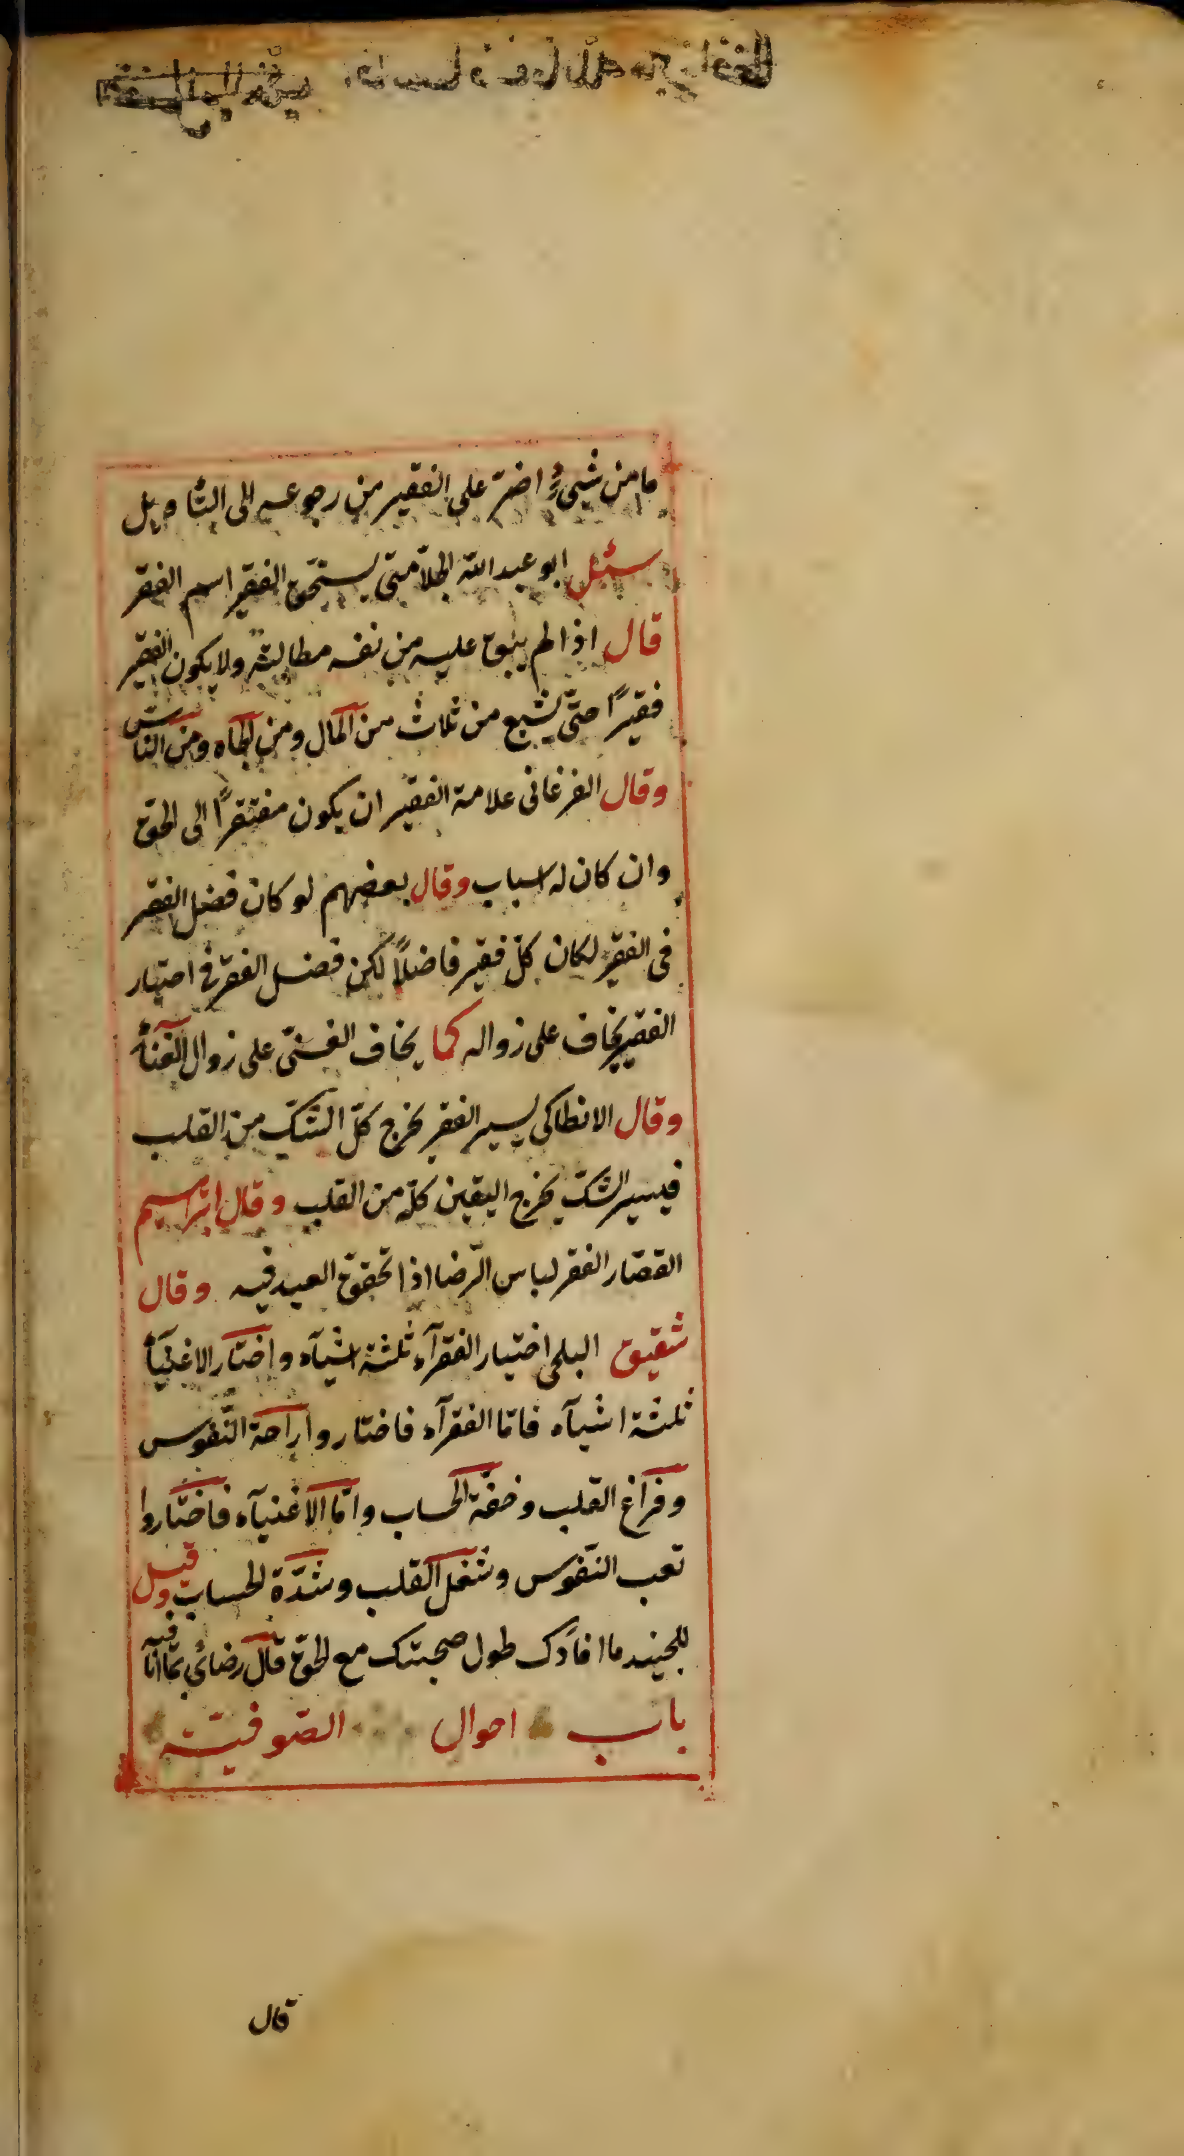 ما من شيءٍ اضرّ على الفقير من رجوعه الى التأويل
سئل ابو عبد الله الجلا متى يستحقّ الفقير اسم الفقر
قال اذا لم يبق عليه من نفسه مطالبة ولا يكون الفقير
فقيرًا حتّى يشبع من ثلاث من المال ومن الجاه ومن الناس
وقال الفرغانى علامة الفقير ان يكون مفتقرًا الى الحق
وان كان له اسباب وقال بعضهم لو كان فضل الفقر
فى الفقر لكان كلّ فقير فاضلًا لكن فضل الفقر فى اختيار
الفقير يخاف على زواله كما يخاف الغنىّ على زوال الغناء
وقال الانطاكى يسير الفقر يخرج كلّ الشكّ من القلب
فيسير الشكّ يخرج اليقين كلّه من القلب وقال ابراهيم
القصّار الفقر لباس الرّضا اذا تحقّق العبد فيه وقال
شقيق البلخى اختيار الفقرآء ثلثة اشيآء واختار الاغنيآء
ثلثة اشيآء فامّا الفقرآء فاختاروا راحة النّفوس
وفراغ القلب وخفّة الحساب وامّا الاغنيآء فاختاروا
تعب النّفوس وشغل القلب وشدّة الحساب وقيل
للجنيد ما افادك طول صحبتك مع الحق قال رضائى بما انا فيه
باب احوال الصّوفيّة
قال